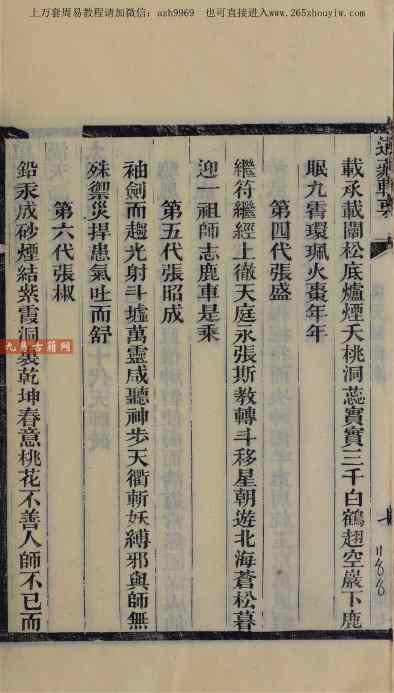 上万套周易教程请加微信：azh9969 也可直接进入www.265zhouyiw.com
載承載闢松底爐煙夭桃洞蕊實實三千白鶴翅空巖下鹿
眠九霄環珮火棗年年
第四代張盛
繼符繼經上徹天庭永張斯教轉斗移星朝遊北海蒼松暮
迎一祖師志鹿車是乘
第五代張昭成
袖劍而趨光射斗墟萬靈咸聽神步天衢斬妖縛邪與師無
殊禦災捍患氣吐而舒
第六代張椒
鉛汞成砂煙結紫霞洞裏乾坤春意桃花不善人師不已而
九易古籍网